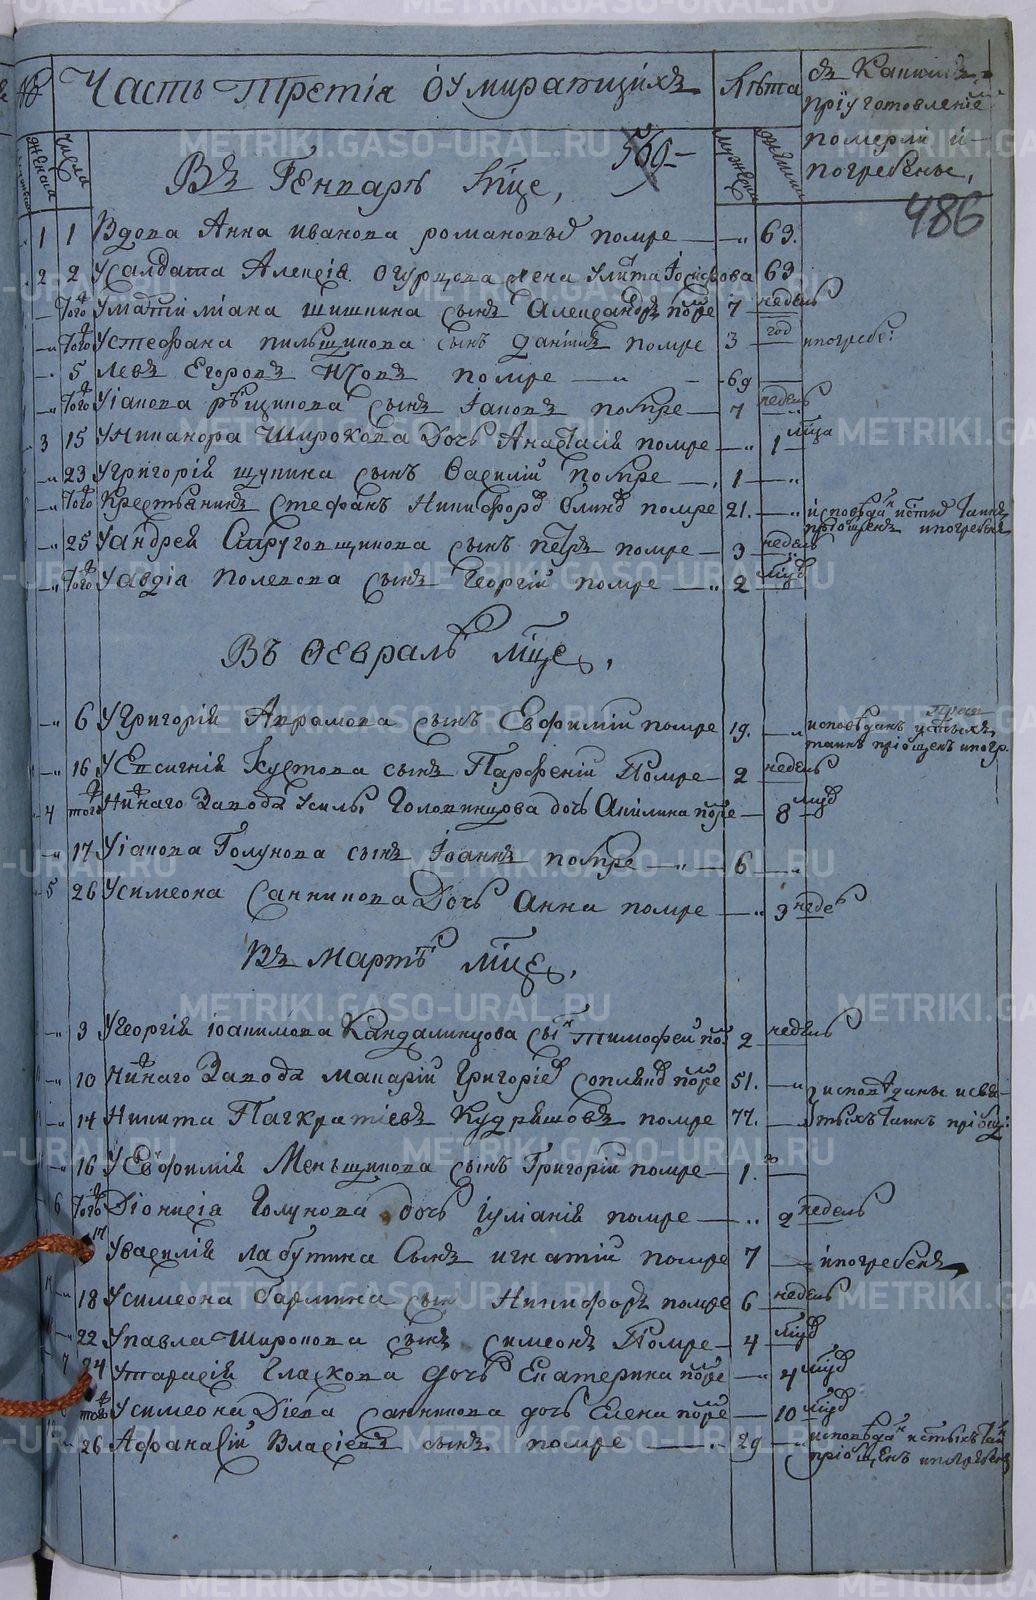 Часть Третiя оумирающихъ
Лѣта
въ Какимъ
прiуготовленiе
померли и
погребены,
числа
мужеска
женска
569
486
Въ Генварѣ мцѣ,
1 1 Вдова Анна иванова романовых помре — „ 63.
2 2 Усалдата Алексiя Огурцова жена Улита Iосифова 63
того Уматiмiана шишкина сынъ Александръ помре 7 недель
того Устефана пильщикова сынъ данiилъ помре 3 год ипогребе:
5 Левъ Егоровъ помре — 69
того Уiакова рѣщикова сынъ Iаковъ помре — 7 недель
3 15 Униканора Широкова дочь Анастасiя помре — „ 1 мца
23 Угригорiя щупина сынъ Василiй помре — 1 — „
того Крестьянинъ Стефанъ Никифоров Блинов помре 21. — исповѣдан истых таинъ
прiобщенъ ипогребенъ
25 Уандрея Струговщикова сынъ петръ помре — 3 недель
того Уавдiа полекова сынъ Георгiй помре — „ 2 мцъ
Въ Февралѣ мцѣ,
6 Угригорiя Аврамова сынъ Евфимiй помре 19. — „ исповѣданъ истыхъ
таинъ прiобщенъ ипогр.
16 УЕвсигнiя Кустова сынъ Парфенiй Помре — 2 недель
4 того Ннаго Завода Усилы Головинцова дочь Акилина помре — 8 мцъ
17 Уiакова Голунова сынъ Iоаннъ помре — „ 6 — „
5 26 Усимеона Санникова Дочь Анна помре — „ 9 неде
Въ Мартѣ мцѣ,
3 Угеоргiя iоакимова Кандалинцова сын Тимофей по: 2 недель
10 Ннаго Завода макарiй григорiев помре 51. — „ исповѣданы исвя
14 Никита Панкратiевъ Кудряшовъ помре 77. — тыхъ таинъ прiобщ:
16 УЕвфимiя Меньщикова сынъ Григорiй помре — 1. —
6 того Дiонисiя Голунова дочь Iулiанiя помре — „ 2 недель
17 Увасилiя лабутина Сынъ игнатiй помре 7 — ипогребенъ
18 Усимеона Гармина сын Никифоръ помре 6 недель
22 Упавла Широкова сынъ симеонъ Помре — 4 мцъ
7 24 Утарасiя Гласкова дочь Екатерина помре — „ 4 мцъ
того Усимеона Дiева Санникова дочь Елена помре — 10 мцъ
26 Афанасiй Власiевъ сынъ помре — 29 — „ исповѣдан истыхъ таи
прiобщенъ ипогребенъ